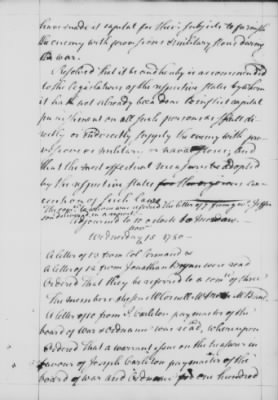 have made it capital for their subjects to furnish
the enemy with provisions & military stores during
the war.
Resolved that it be and hereby is recommended
to the legislatures of the respective states by whom
it hath not already been done to inflict capital
punishment on all such persons as shall di-
rectly or indirectly supply the enemy with pro-
visions or military or naval stores, and
that the most effectual measures be adopted
by the respective states for the vigorous exe-
cution of such laws
The com. to whom was referred the letter of 9 from gov. Jeffer
son delivered in a report
Adjourned to o clock to
Wednesday 15 1780
A letter of 13 from Col
A letter of 12 from Jonathan were read
Ordered That they be referred to a com of three
The members chosen Mr Mr Mr
A letter of 10 from Carleton paymaster of the
board of war & Ordnance was read, whereupon
Ordered That a warrant issue on the treasurer in
favour of Joseph Carleton paymaster of the
board of war and Ordnance for one hundred